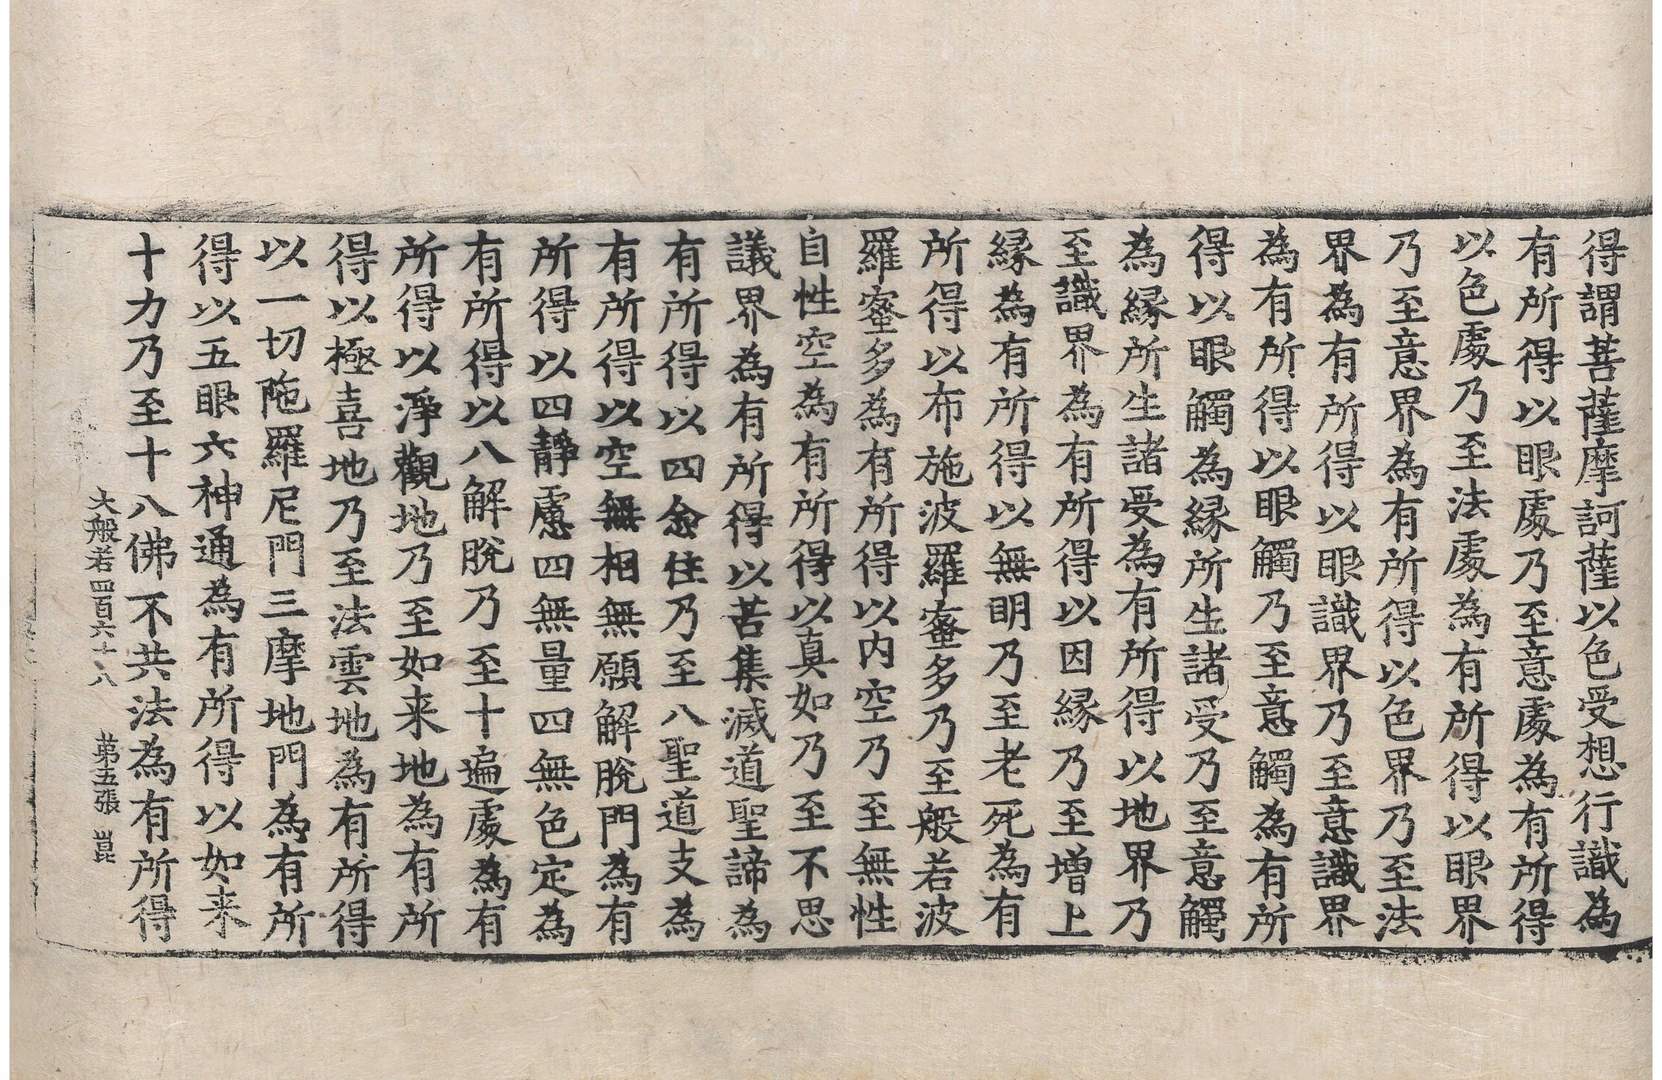 得謂菩薩摩訶薩以色受想行識為
有所得以眼處乃至意處為有所得
以色處乃至法處為有所得以眼界
乃至意界為有所得以色界乃至法
界為有所得以眼識界乃至意識界
為有所得以眼觸乃至意觸為有所
得以眼觸為縁所生諸受乃至意觸
為縁所生諸受為有所得以地界乃
至識界為有所得以因縁乃至增上
縁為有所得以無明乃至老死為有
所得以布施波羅蜜多乃至般若波
羅蜜多為有所得以内空乃至無性
自性空為有所得以真如乃至不思
議界為有所得以苦集滅道聖諦為
有所得以四念住乃至八聖道支為
有所得以空無相無願解脫門為有
所得以四靜慮四無量四無色定為
有所得以八解脫乃至十遍處為有
所得以淨觀地乃至如来地為有所
得以極喜地乃至法雲地為有所得
以一切陁羅尼門三摩地門為有所
得以五眼六神通為有所得以如来
十力乃至十八佛不共法為有所得
大般若四百六十八 第五張 崑